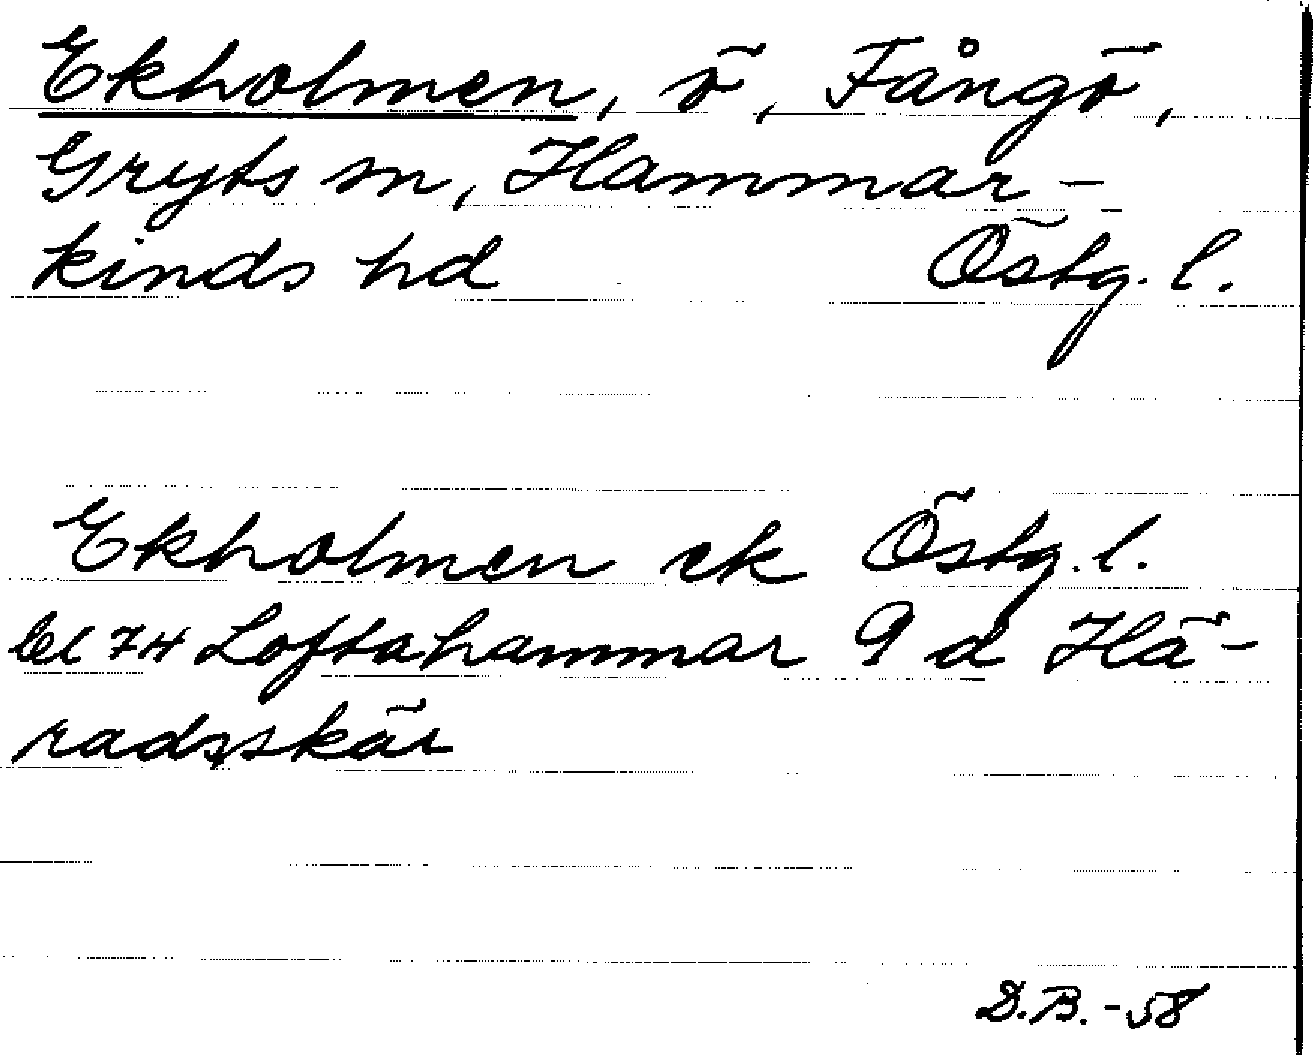 Ekholmen, ö, Fångö,
Gryts sn, Hammar-
kinds hd Östg. l.
Ekholmen ek Östg. l.
bl 74 Loftahammar 9 d Hä-
radsskär
D.B. -58